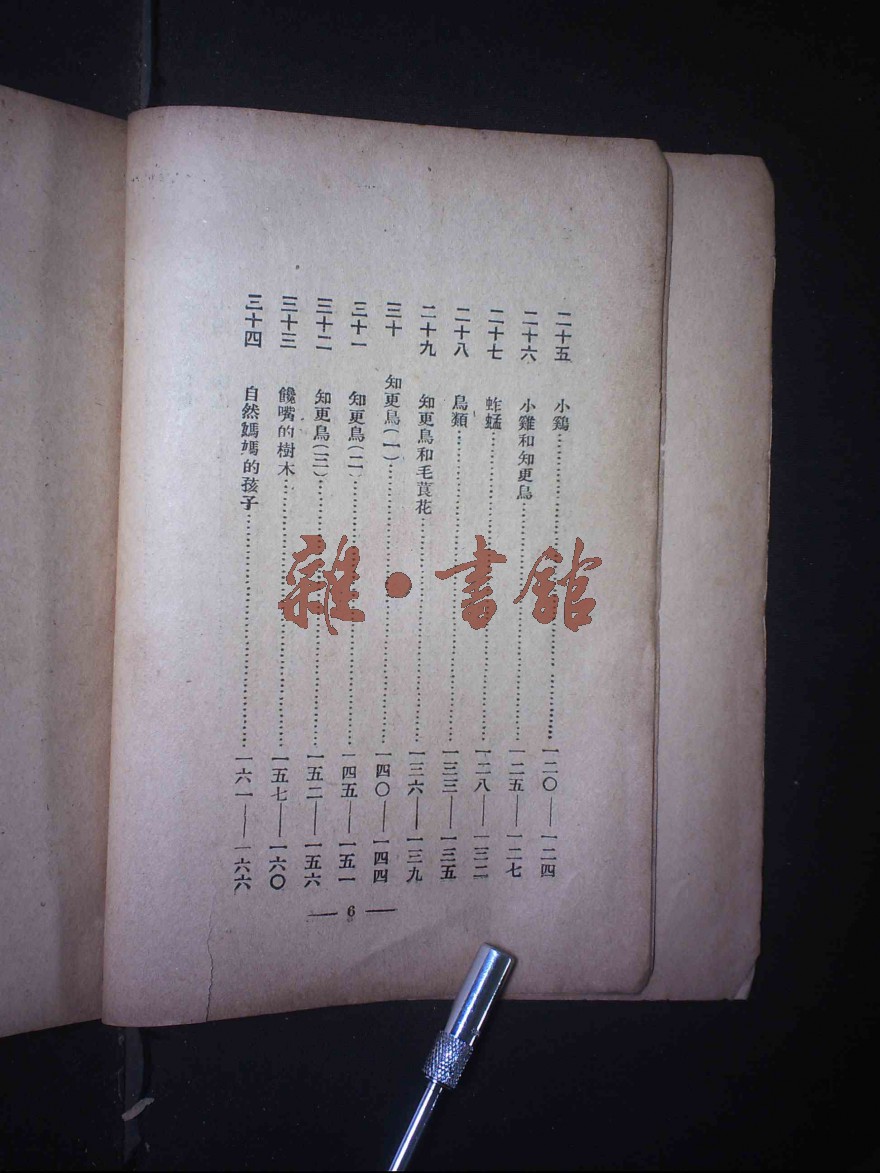 二十五 小鷄……一二〇——一二四
二十六 小雞和知更鳥……一二五——一二七
二十七 蚱蜢……一二八——一三二
二十八 鳥類……一三三——一三五
二十九 知更鳥和毛茛花……一三六——一三九
三十 知更鳥(一)……一四〇——一四四
三十一 知更鳥(二)……一四五——一五一
三十二 知更鳥(三)……一五二——一五六
三十三 饞嘴的樹木……一五七——一六〇
三十四 自然媽媽的孩子……一六一——一六六
— 6 —
雜·書館